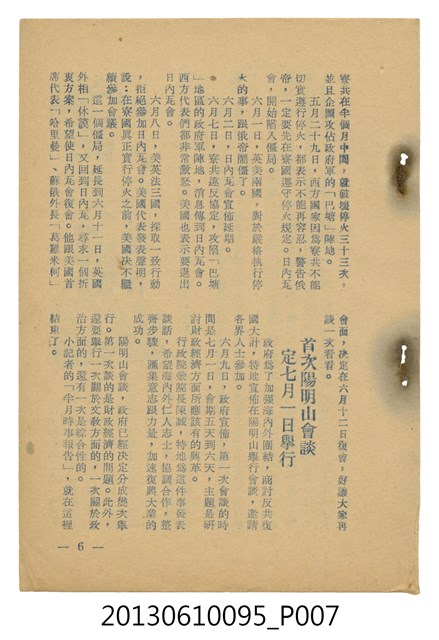 寮共在半個月中間，就破壞停火三十三次，
並且企圖攻佔政府軍的「巴塘」陣地。
五月二十九日，西方國家因為寮共不能
切實遵行停火，都表示不能再容忍，警告俄
帝，一定要先在寮國遵守停火規定。日內瓦
會，開始陷入僵局。
六月一日，英美兩國，對於嚴格執行停
火的事，跟俄帝鬧僵了。
六月二日，日內瓦會宣佈延期。
六月七日，寮共違反協定，攻陷「巴塘
」地區的政府軍陣地，消息傳到日內瓦會。
西方代表們都非常激怒。美國也表示要退出
日內瓦會。
六月八日，美英法三國，採取一致行動
，拒絕參加日內瓦會。美國代表發表聲明，
說：在寮國真正實行停火之前，美國決不繼
續參加會議。
這一個僵局，延長到六月十一日，英國
外相「休謨」，又回到日內瓦，尋求一個折
衷方案，希望使日內瓦會復會。他跟美國首
席代表「哈里曼」、蘇俄外長「葛羅米柯」
會面，決定在六月十二日復會，好讓大家再
談一次看看。
首次陽明山會談
定七月一日舉行
政府為了加強海內外團結，商討反共復
國大計，特地宣佈在陽明山舉行會談，邀請
各界人士參加。
六月九日，政府宣佈，第一次會議的時
間是七月一日，會期五天到六天，主題是研
討財政經濟方面所應該有的興革。
行政院院長陳誠，特地為這件事發表
談話，希望海內外仁人志士，協調合作，整
齊步驟，匯集意志跟力量，加速復興大業的
成功。
陽明山會談，政府已經決定分成幾次舉
行。第一次談的是財政經濟的問題。此外，
還要舉行一次關於文教方面的，一次關於政
治方面的，還有一次是綜合性的。
小記者的「半月時事報告」，就在這裡
結束了。
— 6 —
20130610095_P007